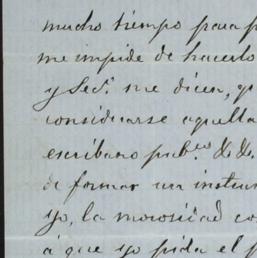 mucho tiempo para p
me impide de hacerlo
y Sec.° me dicen, qu
considerarse aquella
escribano pub.co &. &.
de formar un instru
yo, la morosidad co
á que yo pida el p